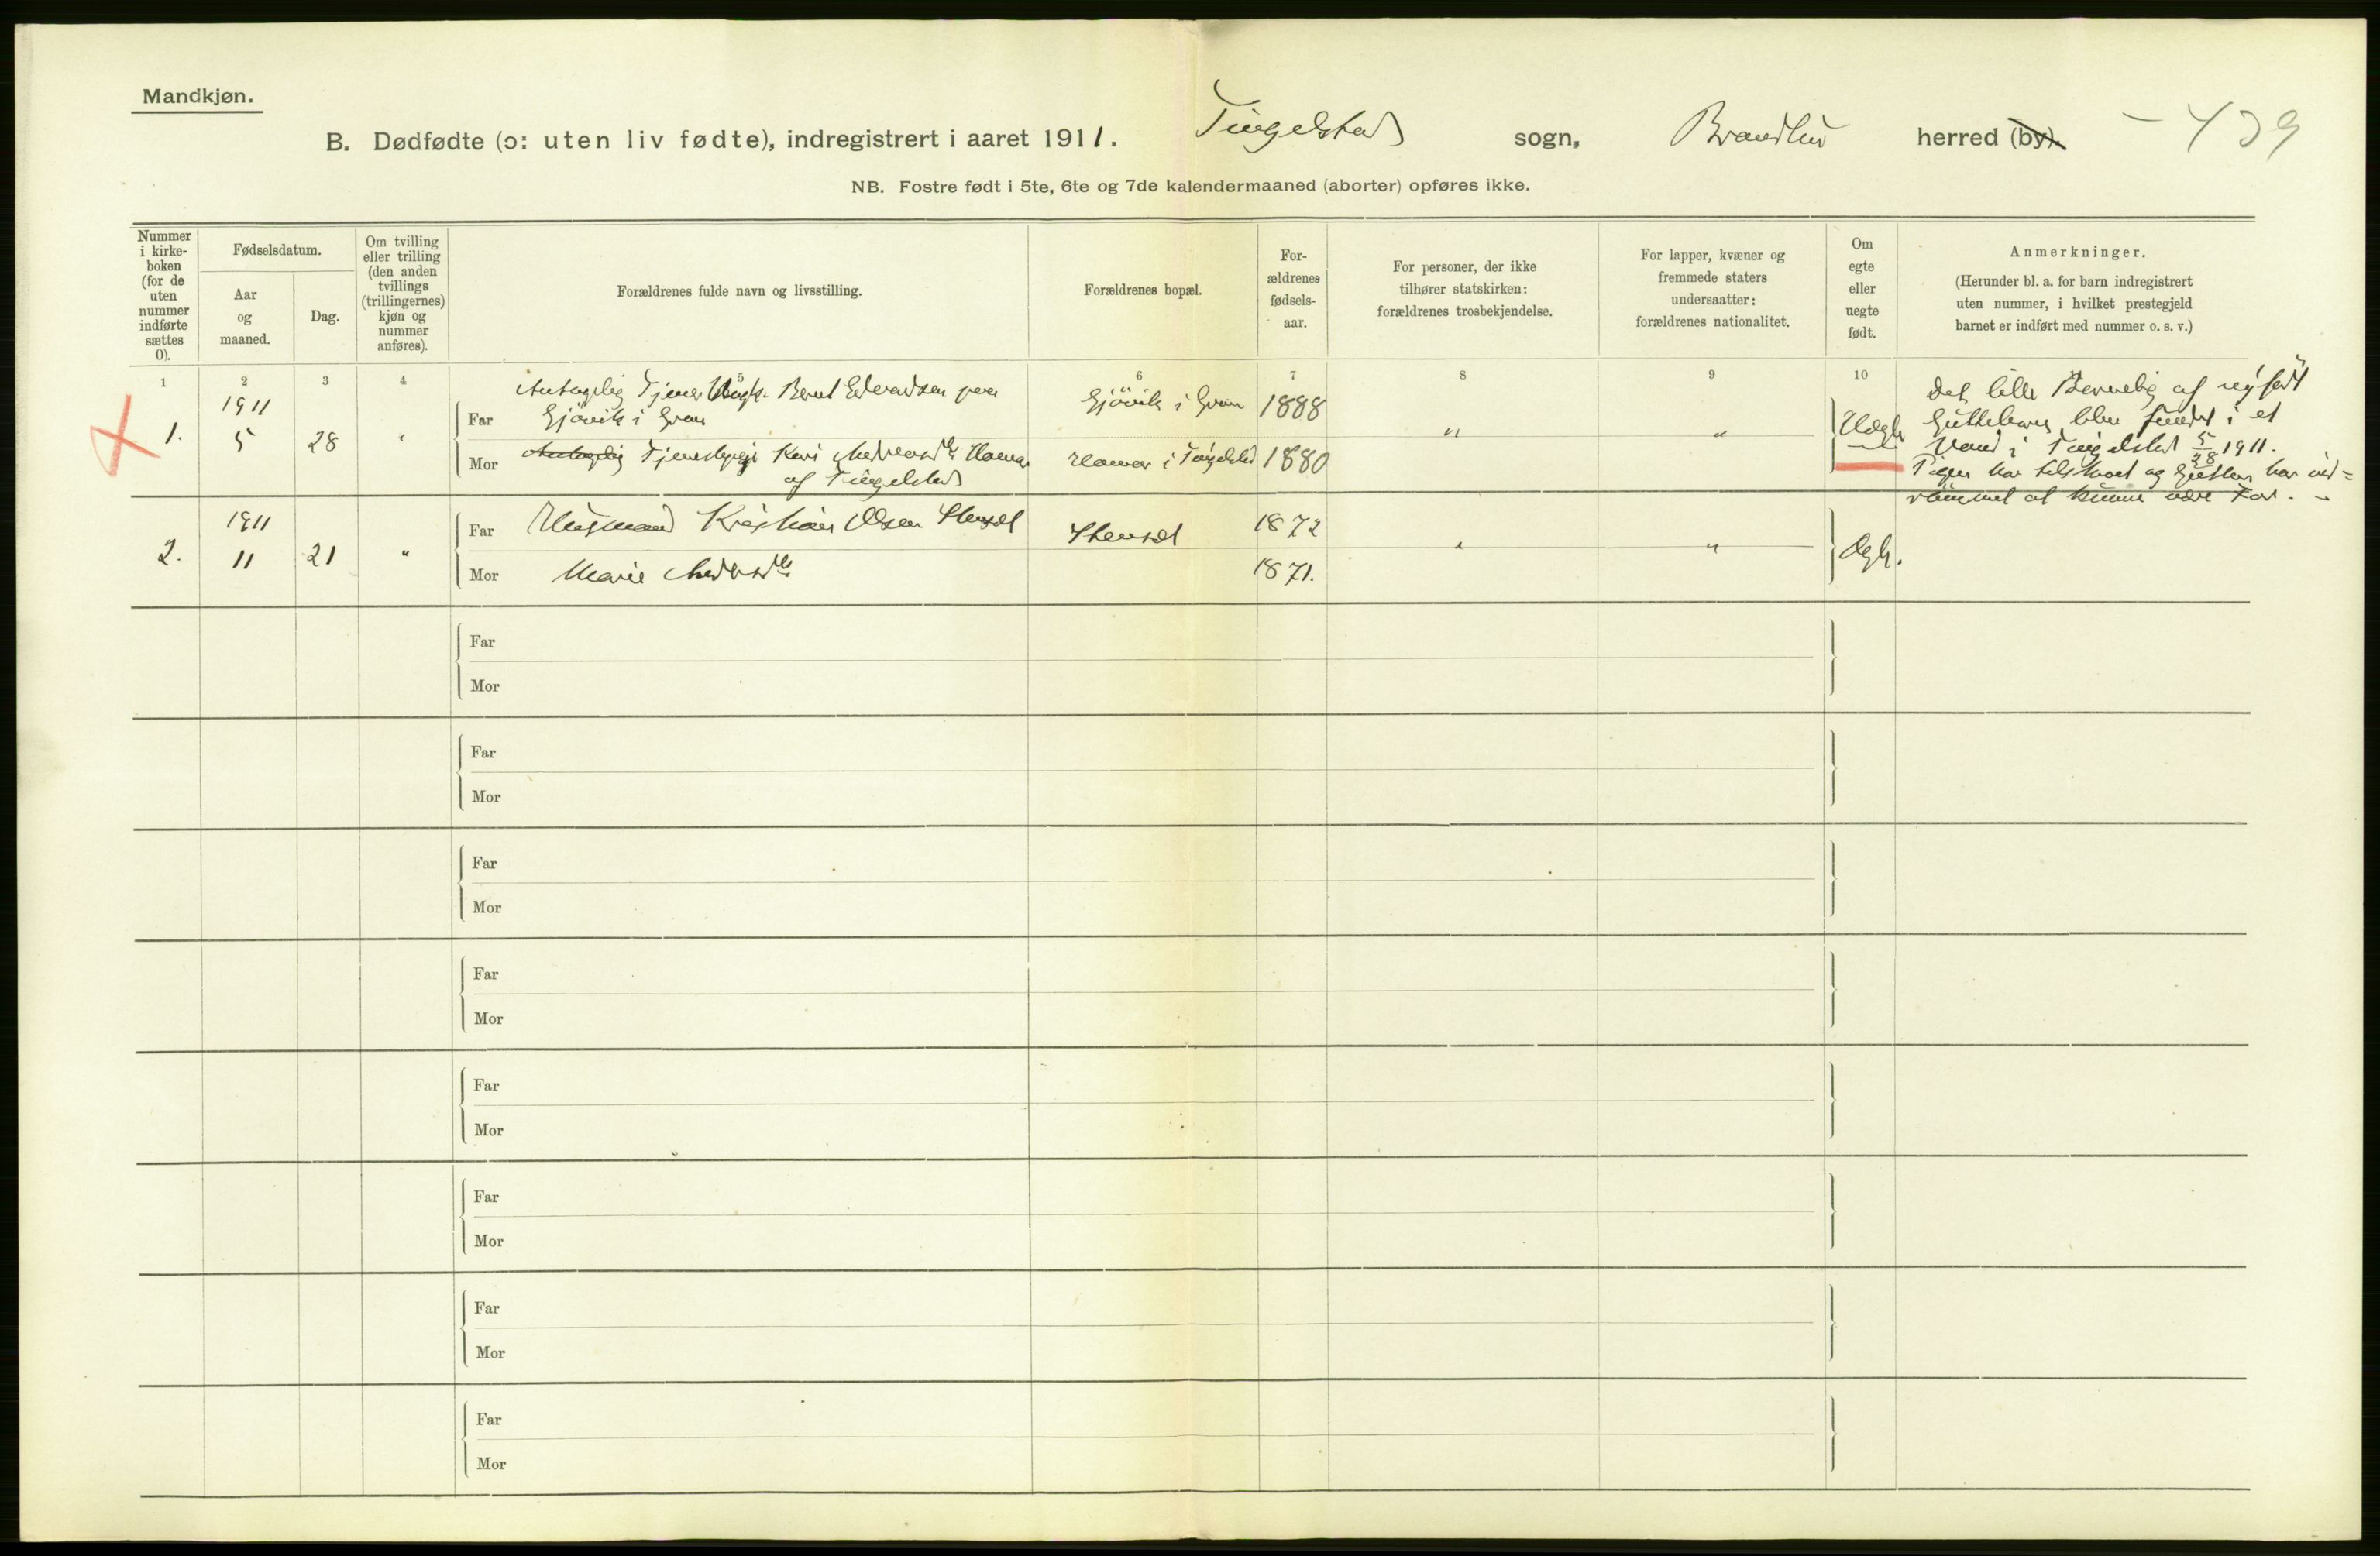 Mandkjøn.
B. Dødfødte (ɔ: uten liv fødte), indregistrert i aaret 1911. Tingelstad sogn, Brandbu herred (by). – 439
NB. Fostre født i 5te, 6te og 7de kalendermaaned (aborter) opføres ikke.
Nummer i kirke-boken (for de uten nummer indførte sættes 0).
Fødselsdatum.
Aar og maaned.
Dag.
Om tvilling eller trilling (den anden tvillings (trillingernes) kjøn og nummer anføres).
Forældrenes fulde navn og livsstilling.
Forældrenes bopæl.
For-ældrenes fødsels-aar.
For personer, der ikke tilhører statskirken: forældrenes trosbekjendelse.
For lapper, kvæner og fremmede staters undersaatter: forældrenes nationalitet.
Om egte eller uegte født.
Anmerkninger.
(Herunder bl. a. for barn indregistrert uten nummer, i hvilket prestegjeld barnet er indført med nummer o. s. v.)
1 2 3 4 5 6 7 8 9 10
1. 1911 5 28 "
Far Antagelig Tjener Ungk. Bernt Edvardsen paa
Gjövik i Gran Gjövik i Gran 1888 " "
Mor Antagelig Tjenestepige Kari Andersdtr. Hamar
af Tingelstad Hamar i Tingelstad 1880
Uegte
Det lille Barnelig af nyfødt
Guttebarn blev fundet i et
Vand i Tingelstad 5/28 1911.
Pigen har tilstaaet og Gutten har ind=
rømmet at kunne være Far. –
2. 1911 11 21 "
Far Husmand Kristian Olsen Stensæt Stensæt 1872 " "
Mor Marie Andersdtr. 1871.
Egte.
Far
Mor
Far
Mor
Far
Mor
Far
Mor
Far
Mor
Far
Mor
Far
Mor
Far
Mor